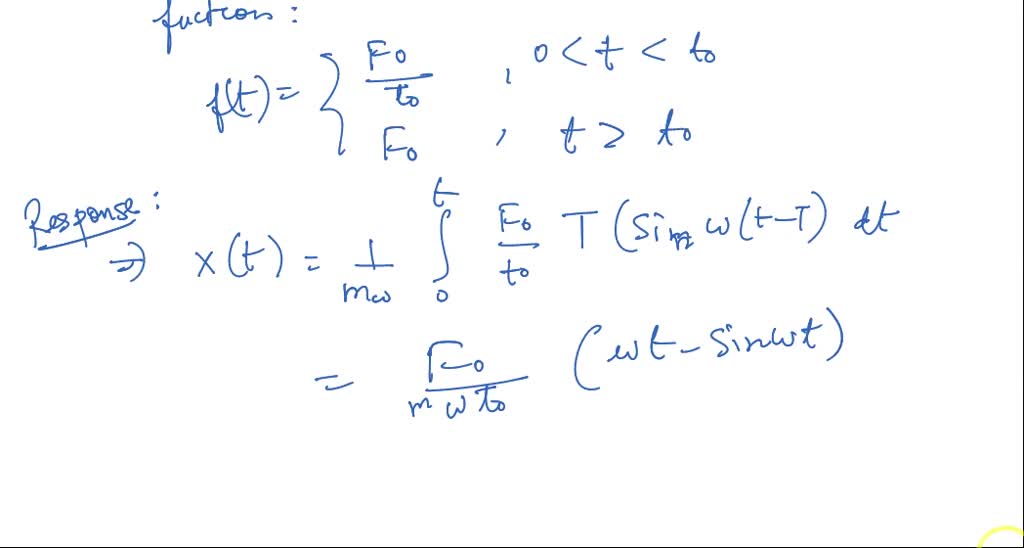 fuction:
f(t) = { F0/t0 , 0 < t < t0
F0 , t > t0
Response:
⇒ x(t) = 1/mω ∫0^t F0/t0 T (Sin ω(t-T) dt
= F0/mωt0 (ωt - Sinωt)